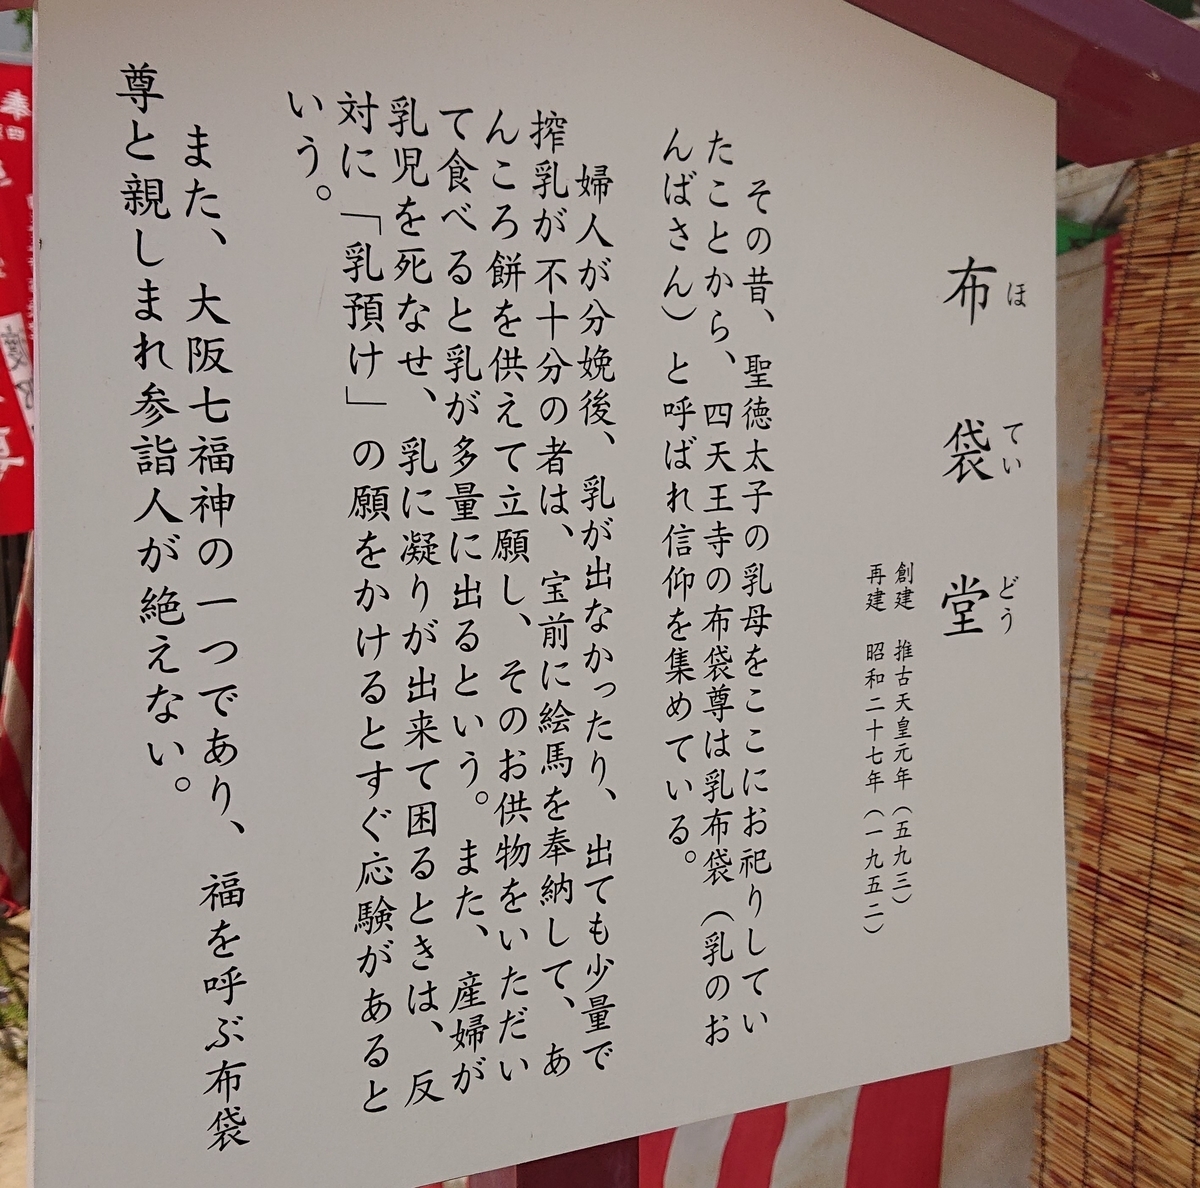 布袋堂
ほていどう
創建 推古天皇元年(五九三)
再建 昭和二十七年(一九五二)
その昔、聖徳太子の乳母をここにお祀りしてい
たことから、四天王寺の布袋尊は乳布袋(乳のお
んばさん)と呼ばれ信仰を集めている。
婦人が分娩後、乳が出なかったり、出ても少量で
搾乳が不十分の者は、宝前に絵馬を奉納して、あ
んころ餅を供えて立願し、そのお供物をいただい
て食べると乳が多量に出るという。また、産婦が
乳児を死なせ、乳に凝りが出来て困るときは、反
対に「乳預け」の願をかけるとすぐ応験があると
いう。
また、大阪七福神の一つであり、福を呼ぶ布袋
尊と親しまれ参詣人が絶えない。
奉